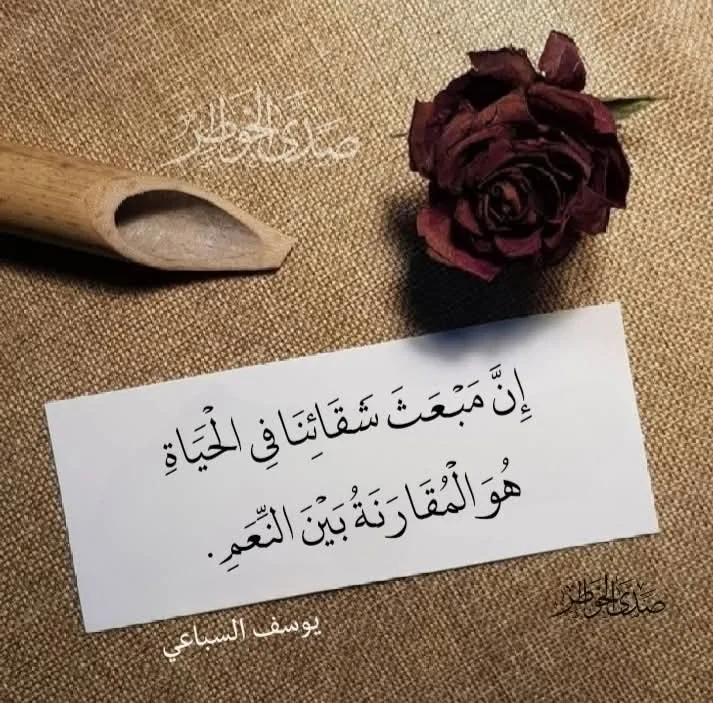 صَدَى الخَوَاطِر
إِنَّ مَبْعَثَ شَقَائِنَا فِي الْحَيَاةِ
هُوَ الْمُقَارَنَةُ بَيْنَ النِّعَمِ.
صَدَى الخَوَاطِر
يوسف السباعي